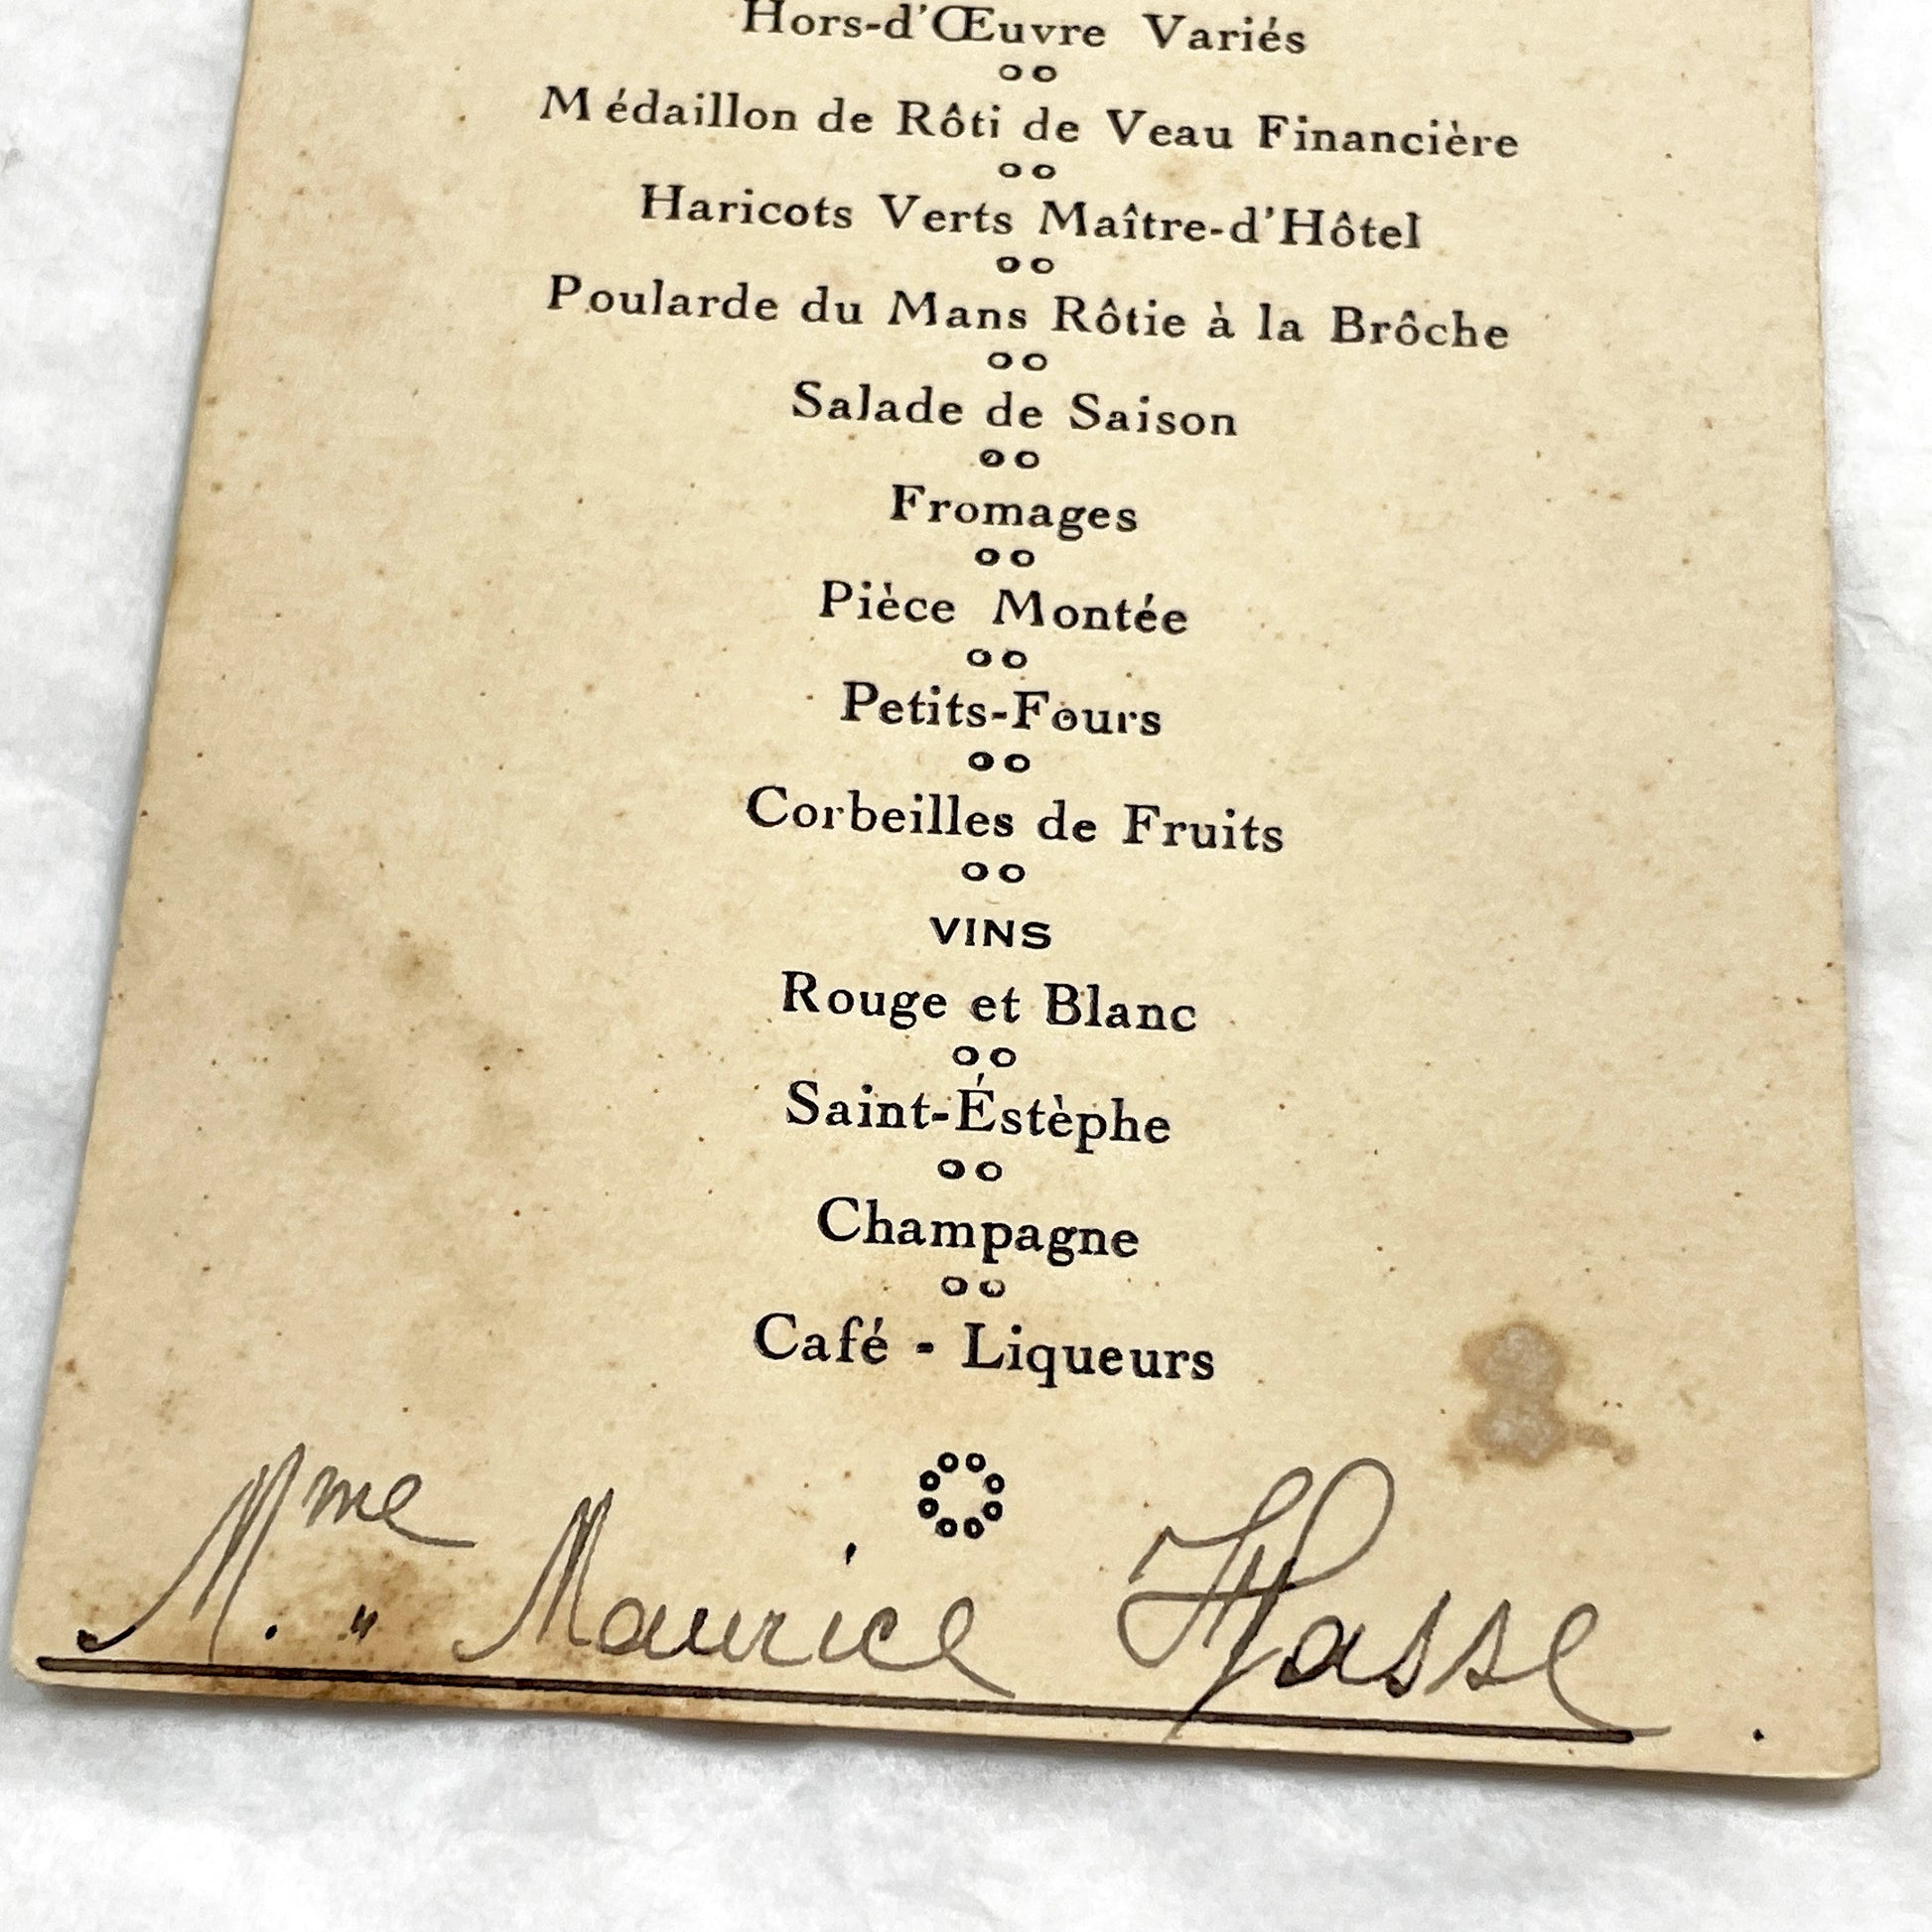 Hors-d'Œuvre Variés
Médaillon de Rôti de Veau Financière
Haricots Verts Maître-d'Hôtel
Poularde du Mans Rôtie à la Brôche
Salade de Saison
Fromages
Pièce Montée
Petits-Fours
Corbeilles de Fruits
VINS
Rouge et Blanc
Saint-Éstèphe
Champagne
Café - Liqueurs
Mme. " Maurice Hasse.